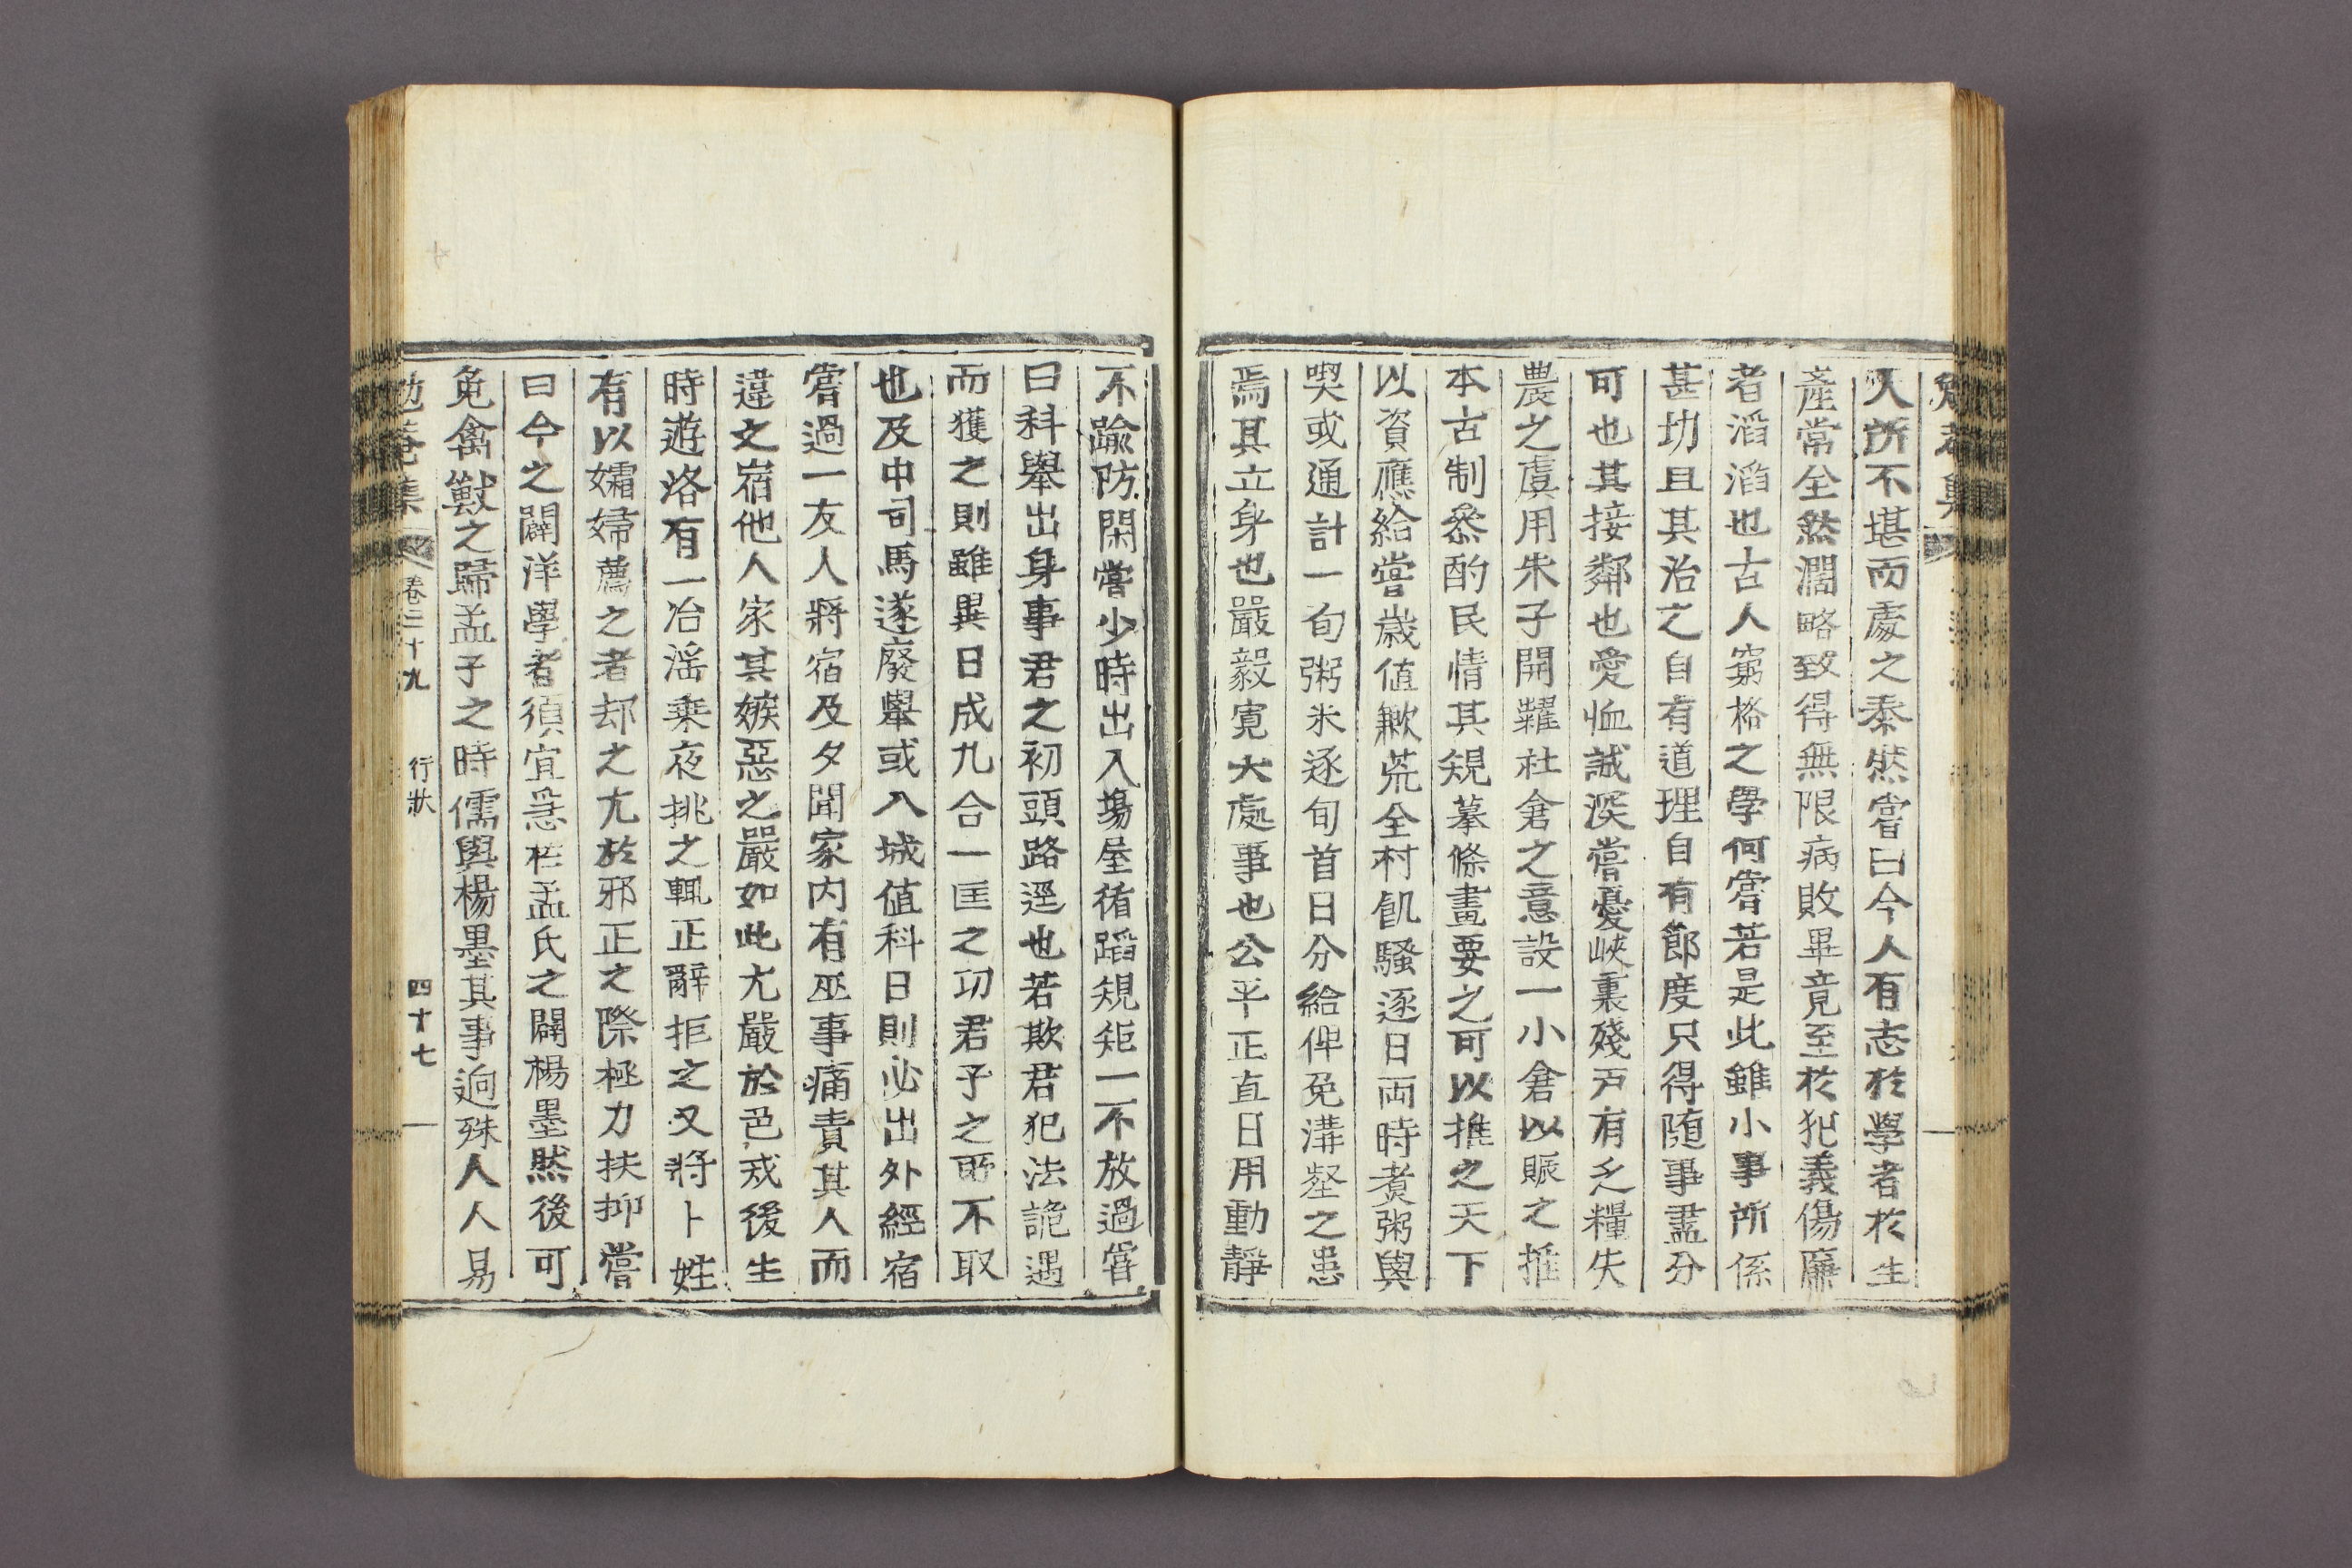 人所不堪而處之泰然嘗曰今人有志於學者於生
產常全然濶略致得無限病敗畢竟至於犯義傷廉
者滔滔也古人窮格之學何嘗若是此雖小事所係
甚切且其治之自有道理自有節度只得随事盡分
可也其接鄰也愛恤誠深嘗憂峽裏殘戶有乏糧失
農之虞用朱子開糶社倉之意設一小倉以賑之推
本古制叅酌民情其規摹條畫要之可以推之天下
以資應給嘗歲值歉荒全村飢騷逐日両時煑粥與
喫或通計一旬粥米逐旬首日分給俾免溝壑之患
焉其立身也嚴毅寛大處事也公平正直日用動靜
不踰防閑嘗少時出入塲屋循蹈規矩一不放過嘗
曰科舉出身事君之初頭路逕也若欺君犯法詭遇
而獲之則雖異日成九合一匡之功君子之所不取
也及中司馬遂廢舉或入城值科日則必出外經宿
嘗過一友人將宿及夕聞家内有巫事痛責其人而
違之宿他人家其嫉惡之嚴如此尤嚴於色戒後生
時遊洛有一冶滛乗夜挑之輒正辭拒之又將卜姓
有以孀婦薦之者却之尤於邪正之際極力扶抑嘗
曰今之闢洋學者須宜急於孟氏之闢楊墨然後可
免禽獸之歸孟子之時儒與楊墨其事逈殊人人易
勉菴集 卷三十九 行狀 四十七